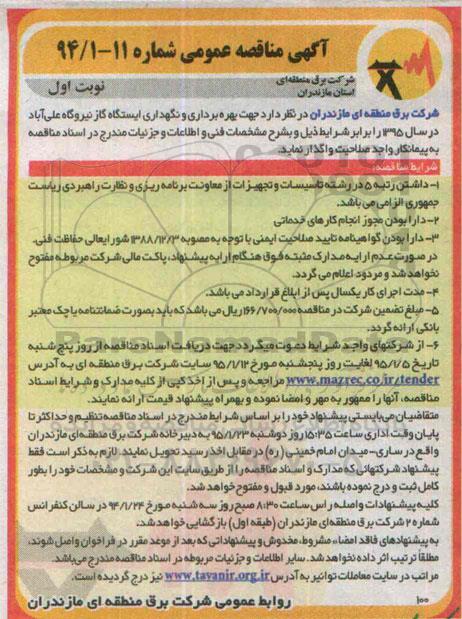 آگهی مناقصه عمومی شماره ۱۱-۹۴/۱
شرکت برق منطقه‌ای
استان مازندران
نوبت اول
شرکت برق منطقه ای مازندران در نظر دارد جهت بهره برداری و نگهداری ایستگاه گاز نیروگاه علی‌آباد
در سال ۱۳۹۵ را برابر شرایط ذیل و بشرح مشخصات فنی و اطلاعات و جزئیات مندرج در اسناد مناقصه
به پیمانکار واجد صلاحیت واگذار نماید.
شرایط مناقصه:
۱- داشتن رتبه ۵ در رشته تاسیسات و تجهیزات از معاونت برنامه ریزی و نظارت راهبردی ریاست
جمهوری الزامی می باشد.
۲- دارا بودن مجوز انجام کار های خدماتی
۳- دارا بودن گواهینامه تایید صلاحیت ایمنی با توجه به مصوبه ۱۳۸۸/۱۲/۳ شورایعالی حفاظت فنی.
در صورت عدم ارایه مدارک مثبته فوق هنگام ارایه پیشنهاد، پاکت مالی شرکت مربوطه مفتوح
نخواهد شد و مردود اعلام می گردد.
۴- مدت اجرای کار یکسال پس از ابلاغ قرارداد می باشد.
۵- مبلغ تضمین شرکت در مناقصه ۱۶۶/۷۰۰/۰۰۰ ریال می باشد که باید بصورت ضمانتنامه یا چک معتبر
بانکی ارائه گردد.
۶- از شرکتهای واجد شرایط دعوت میگردد جهت دریافت اسناد مناقصه از روز پنج شنبه
تاریخ ۹۵/۱/۵ لغایت روز پنجشنبه مورخ ۹۵/۱/۱۲ سایت شرکت برق منطقه ای به آدرس
www.mazrec.co.ir/tender مراجعه و پس از اخذ کپی از کلیه مدارک و شرایط اسناد
مناقصه، آنها را ممهور به مهر و امضا نموده و بهمراه پیشنهاد قیمت ارائه نمایند.
متقاضیان می‌بایستی پیشنهاد خود را بر اساس شرایط مندرج در اسناد مناقصه تنظیم و حداکثر تا
پایان وقت اداری ساعت ۱۵:۳۵ روز دوشنبه ۹۵/۱/۲۳ به دبیرخانه شرکت برق منطقه‌ای مازندران
واقع در ساری- میدان امام خمینی (ره) در مقابل اخذ رسید تحویل نمایند. لازم به ذکر است فقط
پیشنهاد شرکتهائی که مدارک و اسناد مناقصه را از طریق سایت این شرکت و مشخصات خود را بطور
کامل ثبت و درج نموده باشند، مورد قبول و مفتوح خواهد شد.
کلیه پیشنهادات واصله راس ساعت ۸:۳۰ صبح روز سه شنبه مورخ ۹۴/۱/۲۴ در سالن کنفرانس
شماره ۲ شرکت برق منطقه‌ای مازندران (طبقه اول) بازگشایی خواهد شد.
به پیشنهادهای فاقد امضاء، مشروط، مخدوش و پیشنهاداتی که بعد از موعد مقرر در فراخوان واصل شوند،
مطلقاً ترتیب اثر داده نخواهد شد. سایر اطلاعات و جزئیات مربوطه در اسناد مناقصه مندرج می‌باشد.
مراتب در سایت معاملات توانیر به آدرس www.tavanir.org.ir نیز درج گردیده است.
روابط عمومی شرکت برق منطقه ای مازندران
۱۰۰